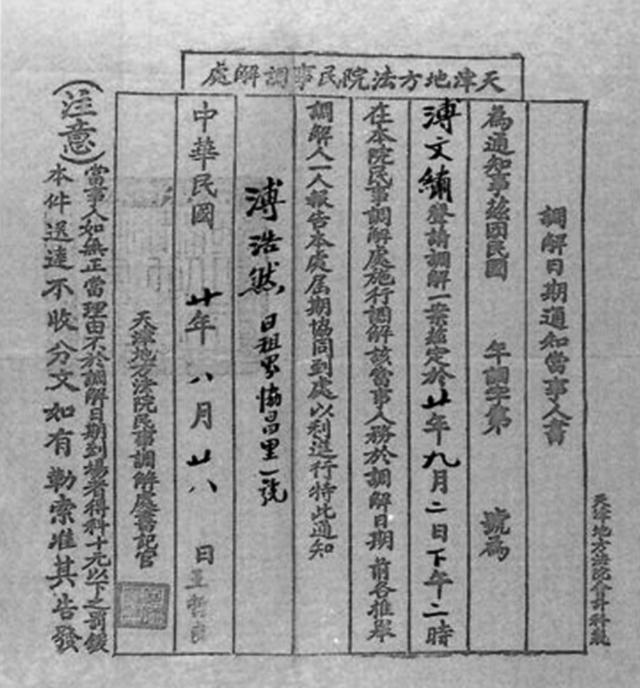 天津地方法院民事調解處
調解日期通知當事人書
為通知事茲因民國　年調字第　號為
溥文繡聲請調解一案鑑定於廿年九月二日下午二時
在本院民事調解處施行調解該當事人務於調解日期前各推舉
調解人一人報告本處屆期協同到處以利進行特此通知
溥浩然 日租界協昌里一號
中華民國 廿年 八月 廿八 日
天津地方法院民事調解處書記官 王
(注意)
當事人如無正當理由不於調解日期到場者得科十元以下之罰鍰
本件送達不收分文如有勒索准其告發
天津地方法院會計科製